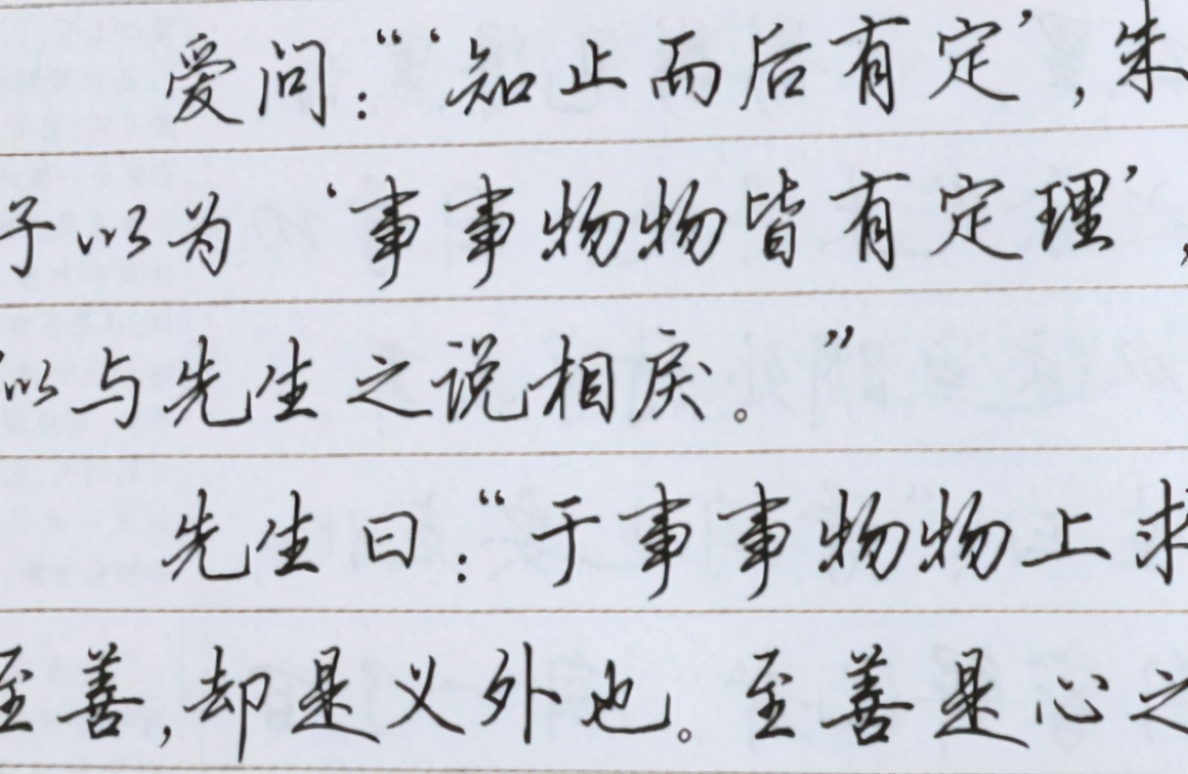 爱问：“‘知止而后有定’，朱
子以为‘事事物物皆有定理’，
似与先生之说相戾。”
先生曰：“于事事物物上求
至善，却是义外也。至善是心之